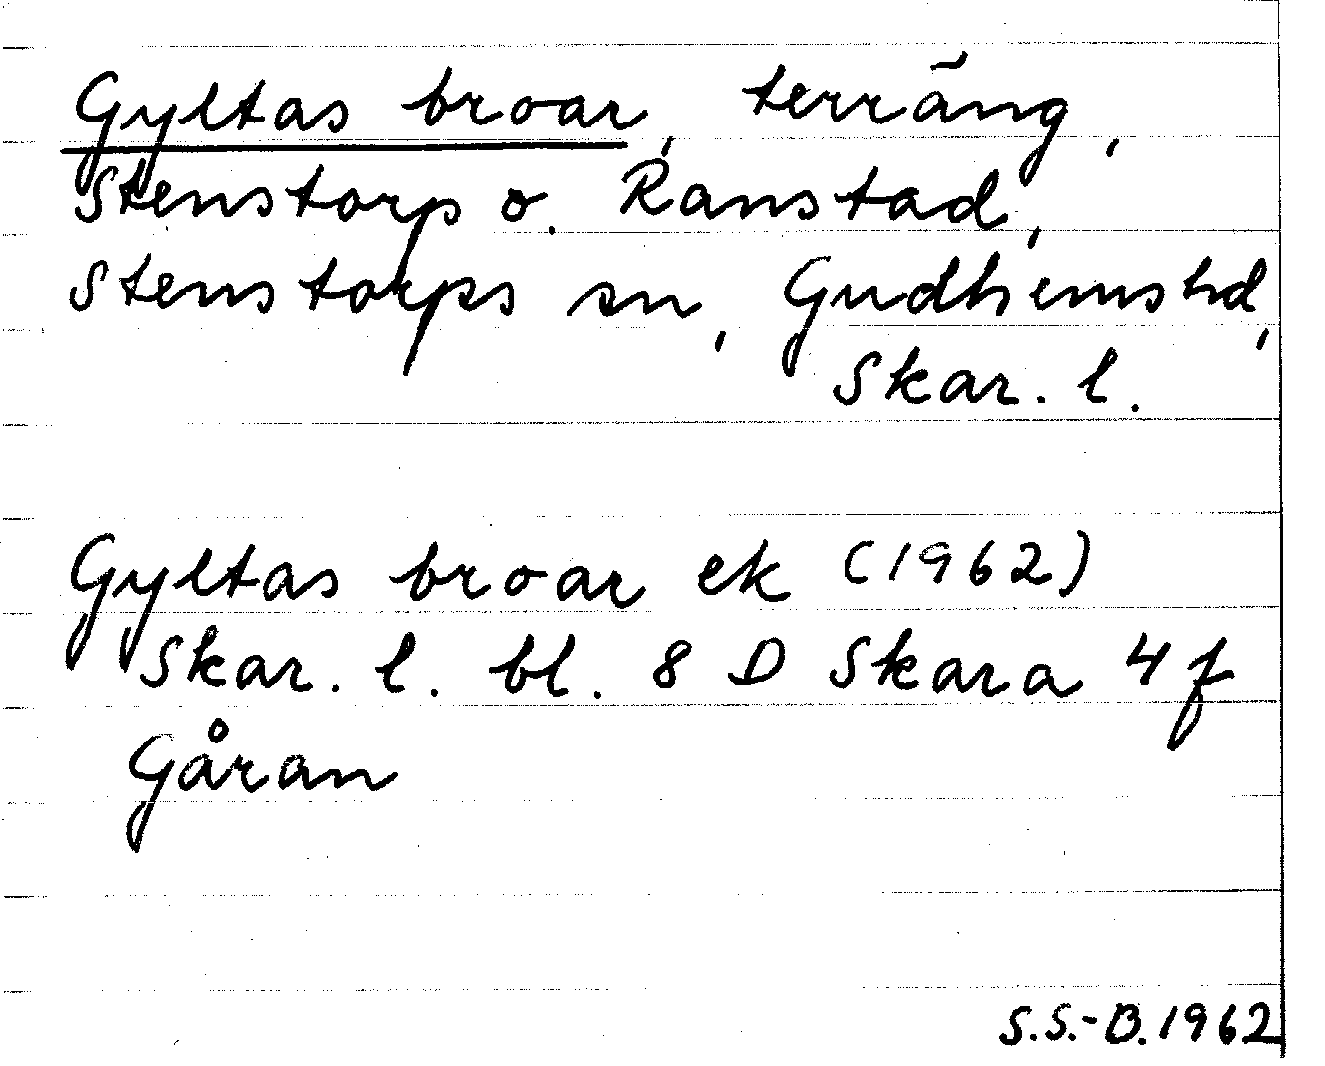 Gyltas broar, terräng,
Stenstorp o. Ranstad,
Stenstorps sn, Gudhems hd,
Skar. l.
Gyltas broar ek (1962)
Skar. l. bl. 8 D Skara 4 f
Gåran
S.S.-B. 1962